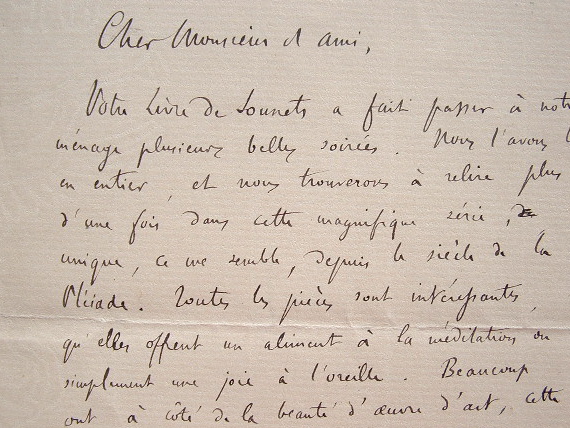 Cher Monsieur et ami,
Votre Livre de Sonnets a fait passer à notre
ménage plusieurs belles soirées. Nous l'avons
en entier, et nous trouverons à relire plus
d'une fois dans cette magnifique série,
unique, ce me semble, depuis le siècle de la
Pléiade. Toutes les pièces sont intéressantes,
qu'elles offrent un aliment à la méditation ou
simplement une joie à l'oreille. Beaucoup
ont à côté de la beauté d'œuvre d'art, cette